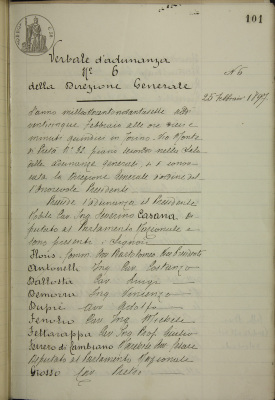 101
Verbale d'adunanza
N° 6
della Direzione Generale
N 6
25 Febbraio 1897
L'anno milleottocentonovantasette alli
venticinque febbraio alle ore
minuti quindici in Torino Via Monte
di Pietà N° 32 piano secondo nella Sala
delle adunanze generali, si è convo
cata la Direzione Generale d'ordine del
l'Onorevole Presidente.
Presiede l'adunanza il Presidente
Nobile Cav. Ing. Severino Casana, De
putato al Parlamento Nazionale e
sono presenti i Signori
Floris Comm. Avv. Bartolomeo, Vice Presidente
Antonelli Ing. Cav. Costanzo
Ballosta Cav. Luigi
Demorra Ing. Vincenzo
Dupré Cav. Adolfo
Fenolio Cav. Ing. Michele
Fettarappa Cav. Ing. Prof. Giulio
Ferrero di Cambiano Marchese Avv. Cesare
Deputato al Parlamento Nazionale
Grosso Cav.